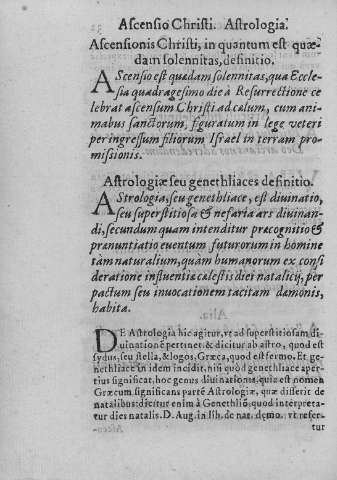 Ascensio Christi. Astrologia.
Ascensionis Christi, in quantum est quæ-
dam solennitas, definitio.
AScensio est quædam solennitas, qua Eccle-
sia quadragesimo die à Resurrectione ce
lebrat ascensum Christi ad cælum, cum ani-
mabus sanctorum, figuratum in lege veteri
per ingressum filiorum Israel in terram pro-
missionis.
Astrologiæ seu genethliaces definitio.
AStrologia, seu genethliace, est divinatio,
seu superstitiosa & nefaria ars divinan-
di, secundum quam intenditur præcognitio &
prænuntiatio eventum futurorum in homine
tam naturalium, quàm humanorum ex consi
deratione influentiæ cælestis diei natalicij, per
pactum seu invocationem tacitam dæmonis,
habita.
DE Astrologia hic agitur, vt ad superstitiosam di-
uinationē pertinet: & dicitur ab astro, quod est
sydus, seu stella, & logos, Græca, quod est sermo. Et ge-
nethliace in idem incidit, nisi quòd genethliace aper-
tius significat, hoc genus diuinationis, quia est nomen
Græcum significans partē Astrologiæ, quæ disserit de
natalibus: dicitur enim à Genethliō, quod interpreta-
tur dies natalis. D. Aug. in lib. de nat. dęmo. vt refer-
tur